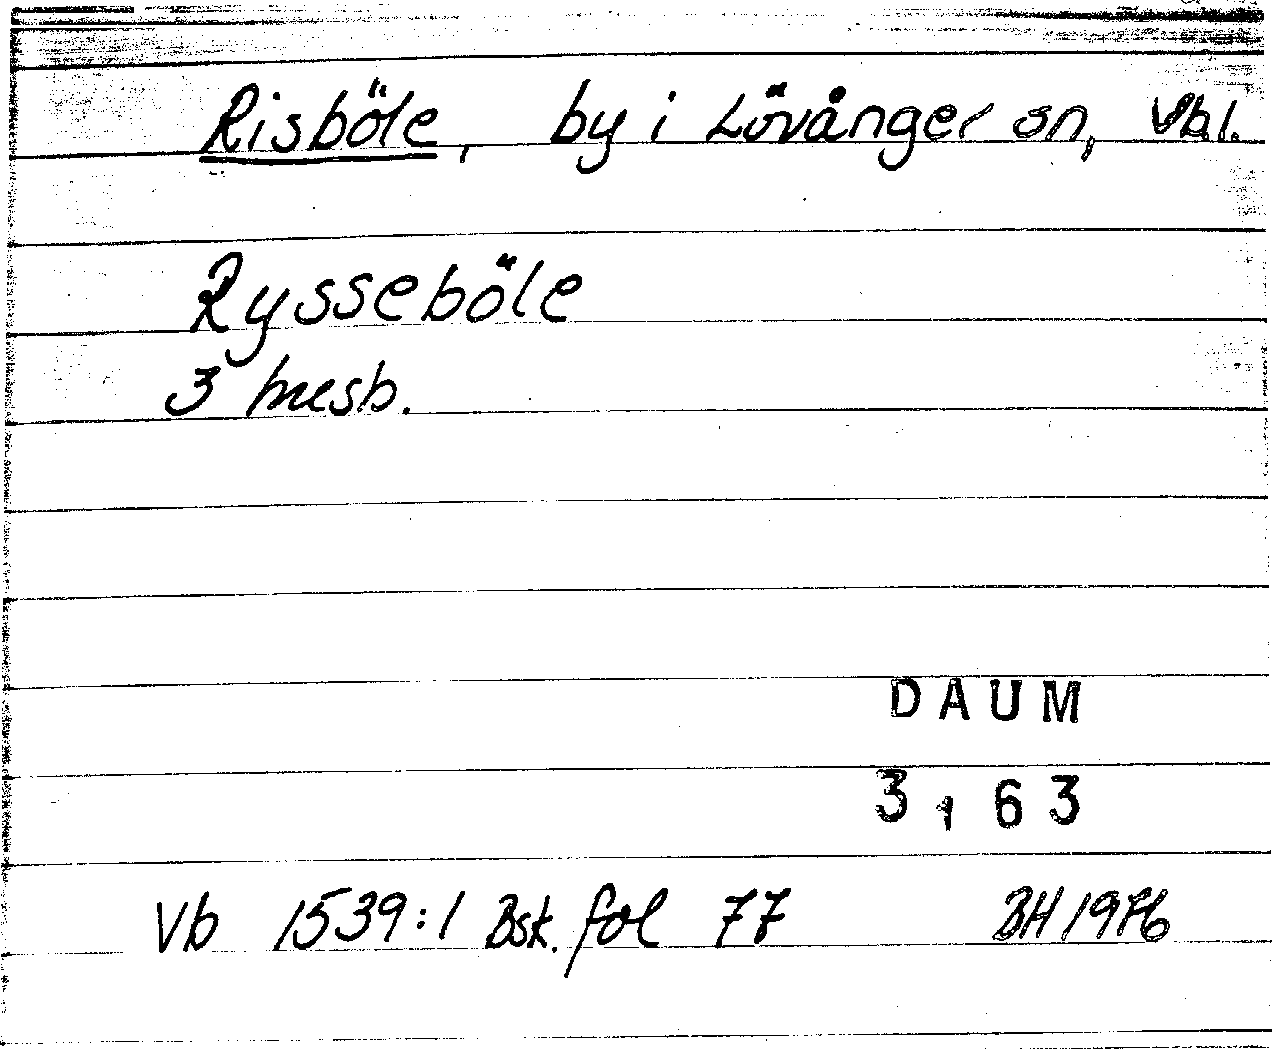 Risböle, by i Lövånger sn, Vbl.
Rysseböle
3 mesb.
DAUM
3163
Vb 1539:1 Bsk. fol 77 BH 1976